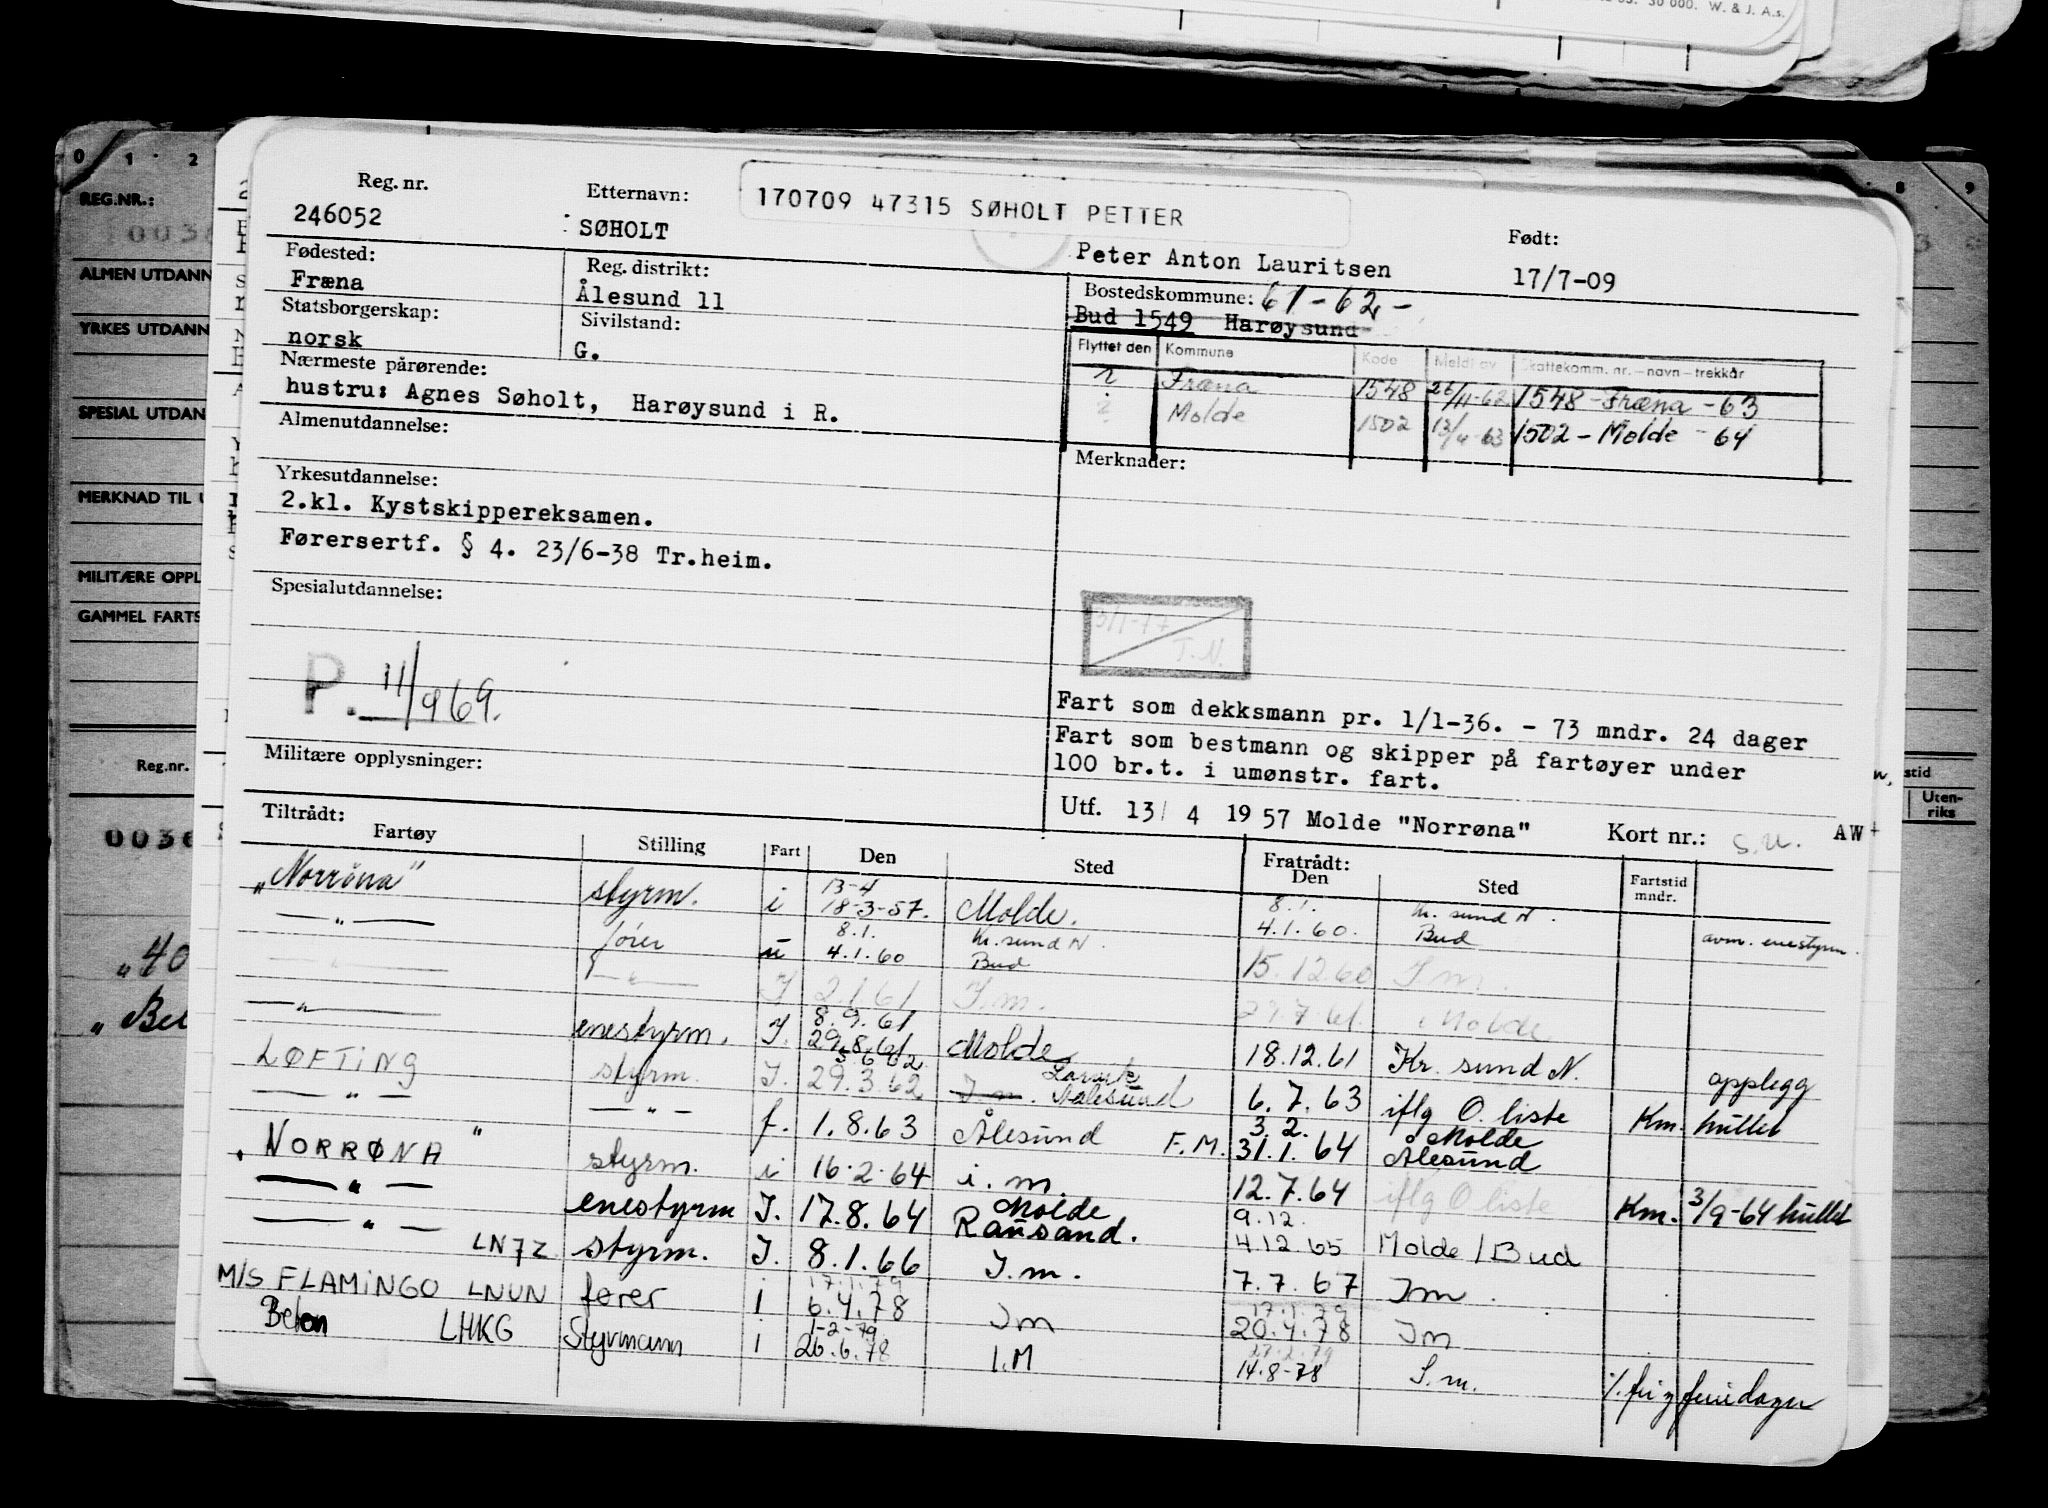 30 000. W. & J. A.s.
0 1 2
8 9
REG.NR.:
ALMEN UTDANN
YRKES UTDANN
SPESIAL UTDAN
MERKNAD TIL U
MILITÆRE OPPL
GAMMEL FARTS
Reg.nr.
0036
„40
„Be
stid
Uten-
riks
Reg. nr. Etternavn: 170709 47315 SØHOLT PETTER
246052 SØHOLT Peter Anton Lauritsen Født: 17/7-09
Fødested: Reg. distrikt: Bostedskommune: 61-62-
Fræna Ålesund 11 Bud 1549 Harøysund
Statsborgerskap: Sivilstand: Flyttet den Kommune Kode Meldt av Skattekomm. nr.-navn-trekkår
norsk G. Fræna 1548 26/11-62 1548-Fræna-63
Nærmeste pårørende: Molde 1502 13/4-63 1502-Molde-64
hustru: Agnes Søholt, Harøysund i R.
Almenutdannelse: Merknader:
Yrkesutdannelse:
2.kl. Kystskippereksamen.
Førersertf. § 4. 23/6-38 Tr.heim.
Spesialutdannelse:
3/1-77
T.N.
P. 11/969.
Fart som dekksmann pr. 1/1-36. - 73 mndr. 24 dager
Fart som bestmann og skipper på fartøyer under
100 br.t. i umønstr. fart.
Militære opplysninger:
Utf. 13/ 4 1957 Molde "Norrøna" Kort nr.: S.U. AW+
Tiltrådt: Fratrådt:
Fartøy Stilling Fart Den Sted Den Sted Fartstid mndr.
„Norrøna" styrm. i 13-4 18-3-57. Molde. 8.1. 4.1.60. Kr. sund N. Bud avm. enestyrm.
— " — fører u 8.1. 4.1.60 Kr. sund N. Bud 15.12.60 I m.
— " — — " — I 2.1.61 I.m. 29.7.61. Molde
— " — enestyrm. I. 8.9.61 29.8.61 Molde 18.12.61 Kr. sund N. opplegg
LØFTING styrm. I. 5.6.62 29.3.62 Larvik I m. Aalesund 6.7.63 iflg O. liste Km. hullet
— " — — " — f. 1.8.63 Ålesund F.M. 3.2. 31.1.64 Molde Ålesund
„NORRØNA" styrm. i 16.2.64 i.m 12.7.64 iflg O liste Km. 3/9-64 hullet
— " — enestyrm I. 17.8.64 Molde Rausand. 9.12. 4.12.65 Molde/Bud
— " — LN7Z styrm. I. 8.1.66 I.m. 7.7.67 Im.
M/S FLAMINGO LNUN fører i 17.1.79 6.4.78 Im 17.1.79 20.4.78 Im
Beton LHKG Styrmann i 1-2-79 26.6.78 I.M 27.2.79 14.8-78 I.m. %. fri feriedager